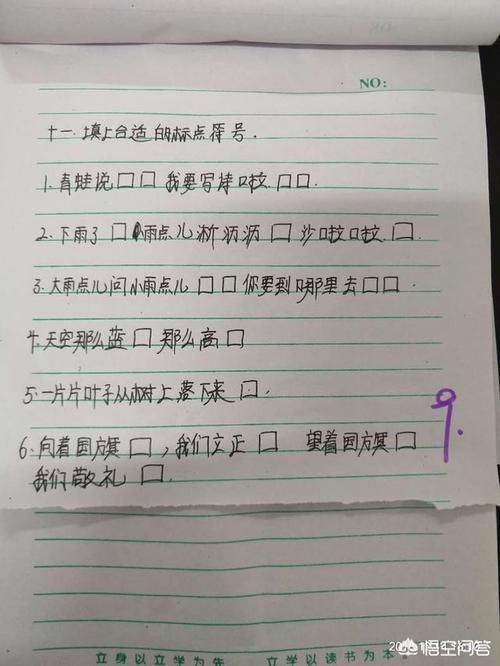 NO:
十一.填上合适的标点符号.
1.青蛙说□□我要写诗啦□□.
2.下雨了□小雨点儿淅沥沥□沙啦啦□.
3.大雨点儿问小雨点儿□□你要到哪里去□□.
4.天空那么蓝□那么高□
5.一片片叶子从树上落下来□.
6.向着国旗□,我们立正□ 望着国旗□
我们敬礼□.
9.
立身以立学为先 立学以读书为本
悟空问答